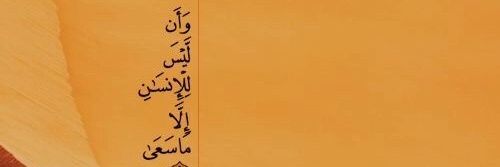 وَأَن
لَّيْسَ
لِلْإِنسَـٰنِ
إِلَّا
مَا سَعَىٰ